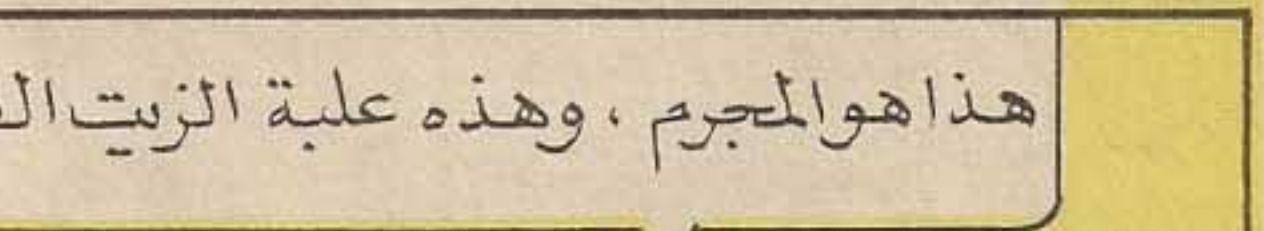 هذا هو المجرم ، وهذه علبة الزيت